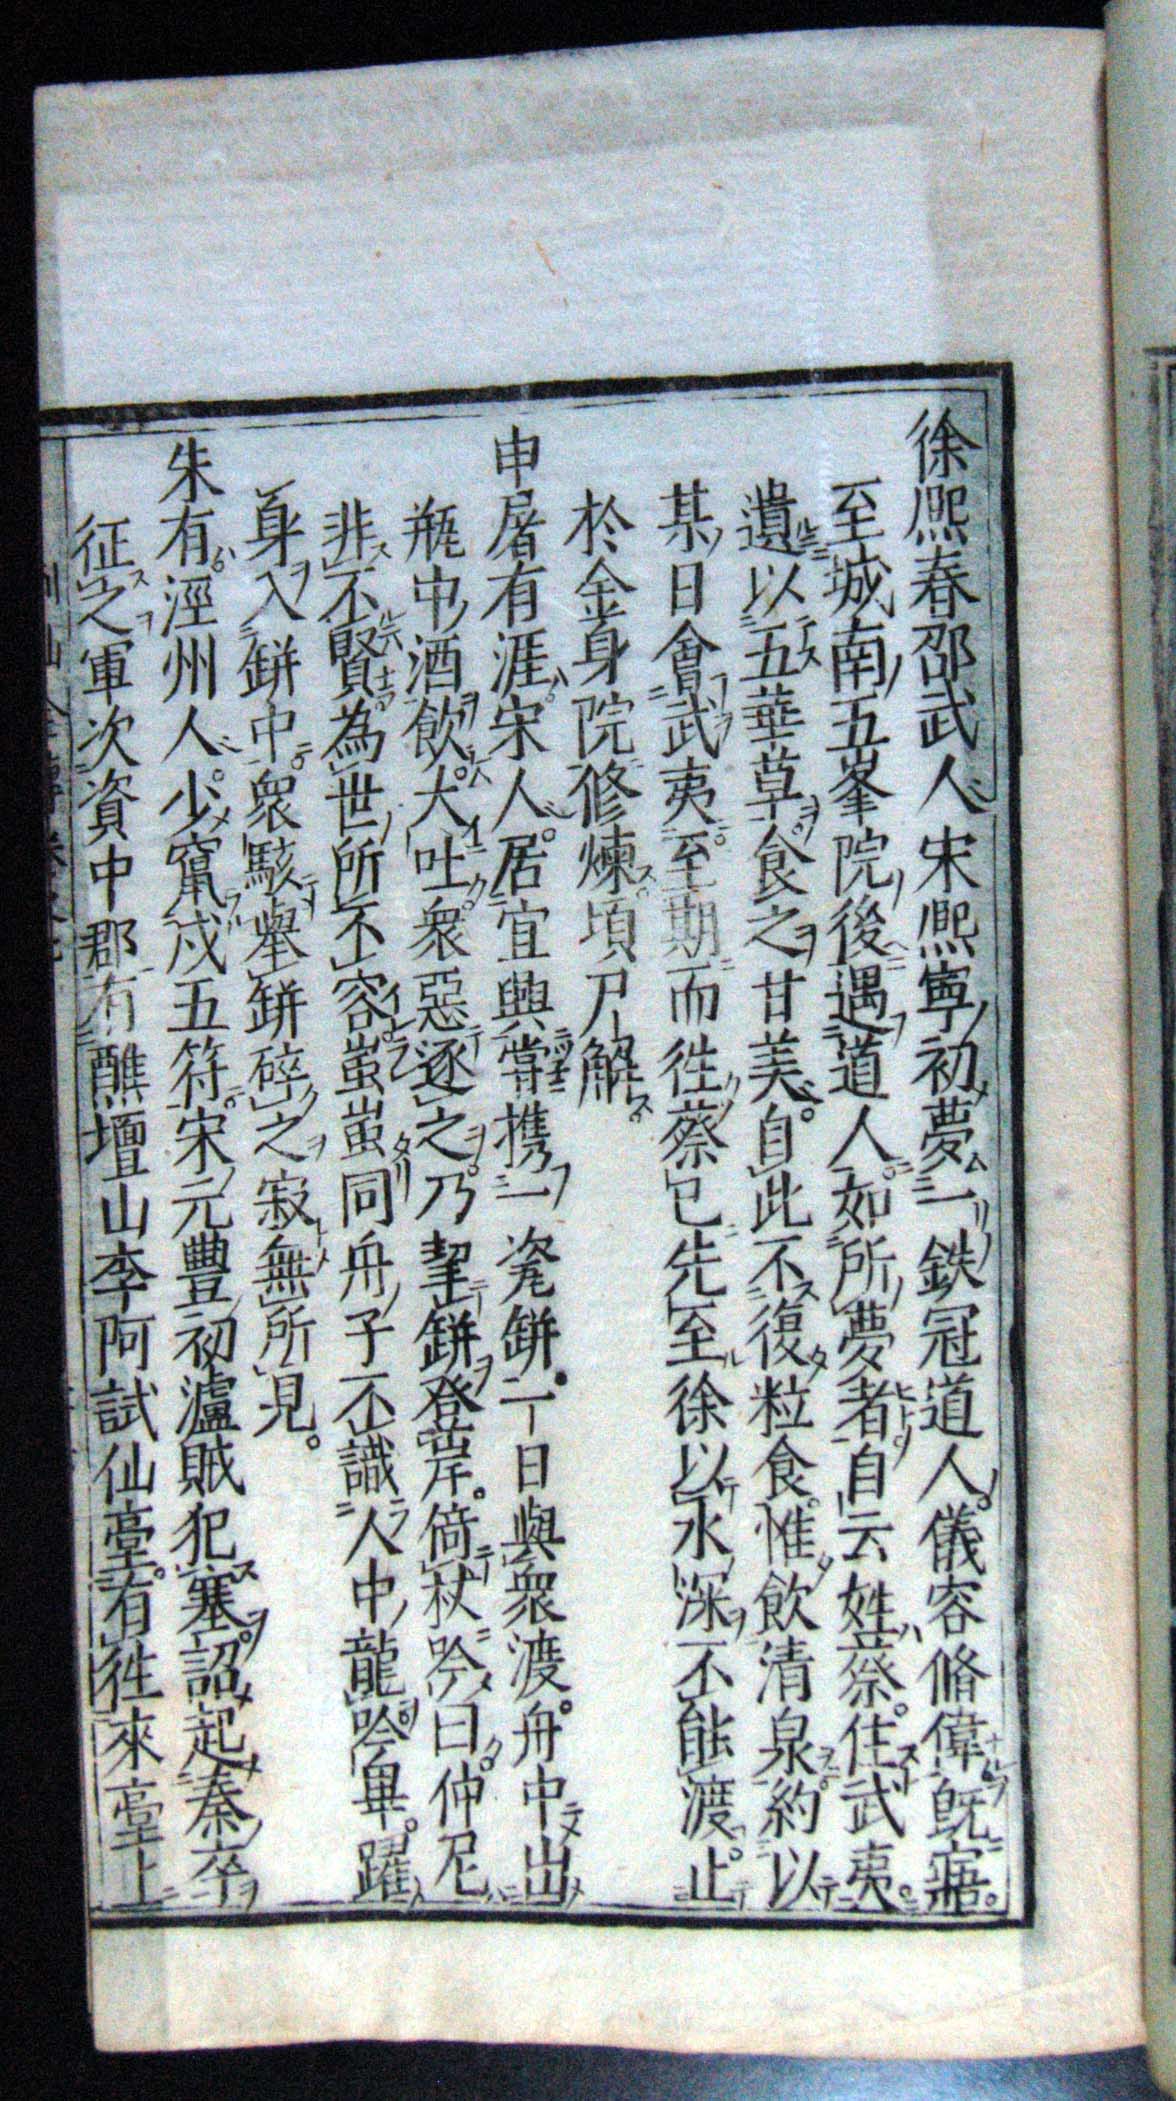 徐熈春邵武人宋熈寧初夢一鉄冠道人儀容脩偉既寤
至城南五峯院後遇道人如所夢者自云姓蔡住武夷
遺以五華草食之甘美自此不復粒食惟飲清泉約以
某日會武夷至期而徃蔡已先至徐以水深不能渡止
於金身院修煉頃尸解
申屠有涯宋人居宜興嘗携一瓷缾一日與衆渡舟中出
瓶中酒飲大吐衆惡逐之乃挈缾登岸倚杖吟曰仲尼
非不賢為世所不容蚩蚩同舟子不識人中龍吟畢躍
身入缾中衆駭舉缾碎之寂無所見
朱有涇州人少竄戍五符宋元豐初瀘賊犯塞詔起秦卒
征之軍次資中郡有醮壇山李阿試仙臺有徃來臺上